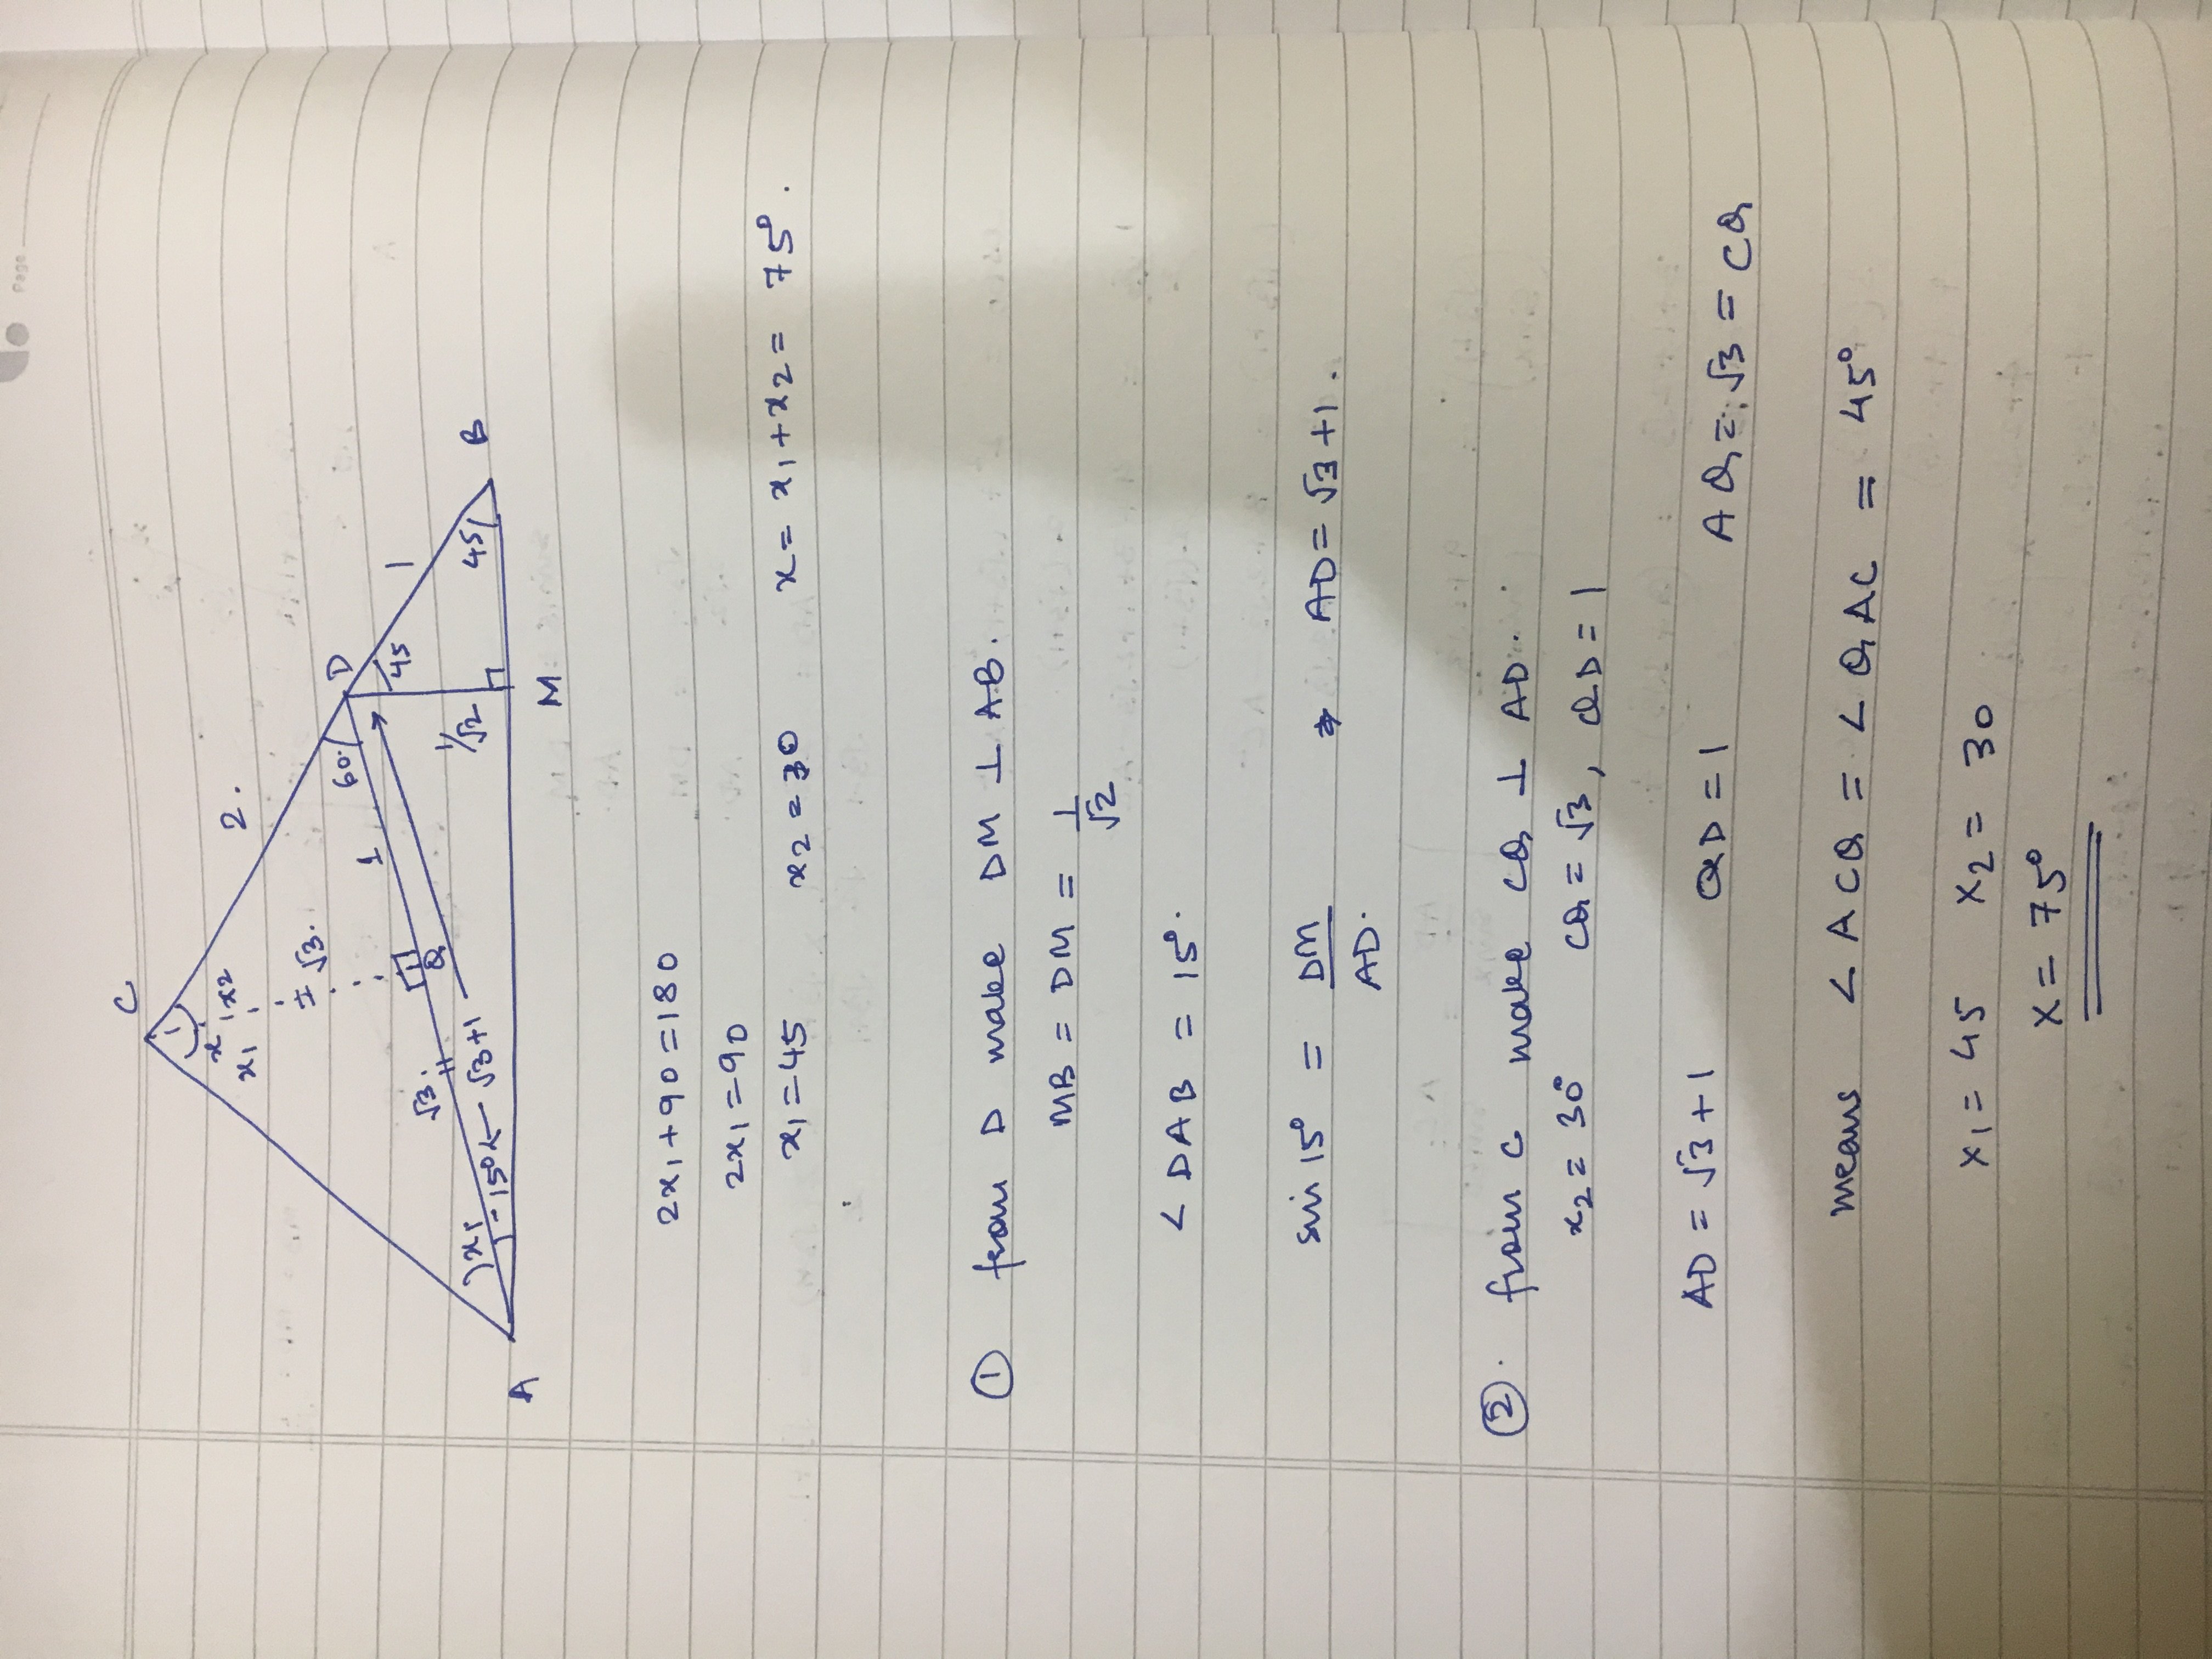 Page
C
2.
x
x1 x2
= √3.
D
60°
1
1
45
B
45
1/√2
M
Q
√3.
√3+1
x1
15°
A
2x1+90=180
2x1=90
x1=45 x2=30 x= x1+x2= 75°.
① from D make DM ⊥ AB.
MB = DM = 1/√2
∠DAB = 15°.
sin 15° = DM/AD. ⇒ AD= √3+1.
②. from C make CQ ⊥ AD.
x2= 30° CQ= √3, QD=1
AD= √3+1 QD=1 AQ= √3 = CQ
means ∠ACQ = ∠QAC = 45°
x1= 45 x2= 30
x= 75°